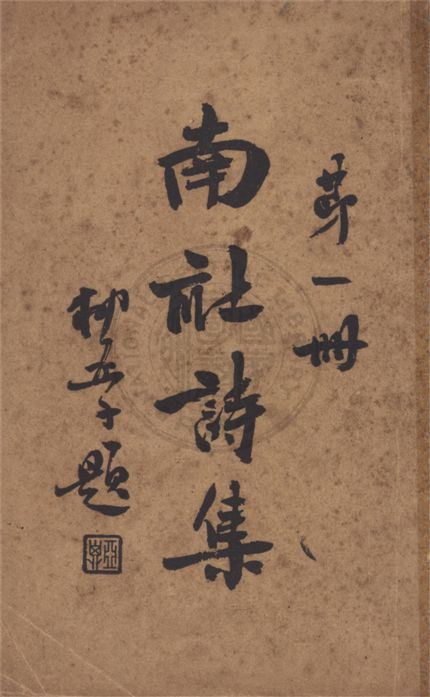 第一冊
南社詩集
柳亞子題
亞子